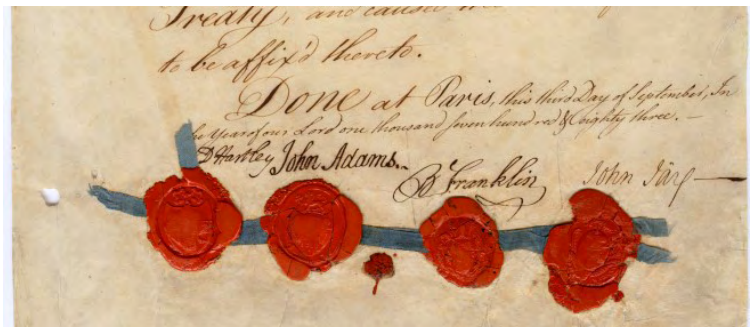 Treaty, and caused
to be affix'd thereto.
Done at Paris, this third Day of September, In
the Year of our Lord one thousand seven hundred & eighty three. —
D Hartley John Adams. B Franklin John Jay —